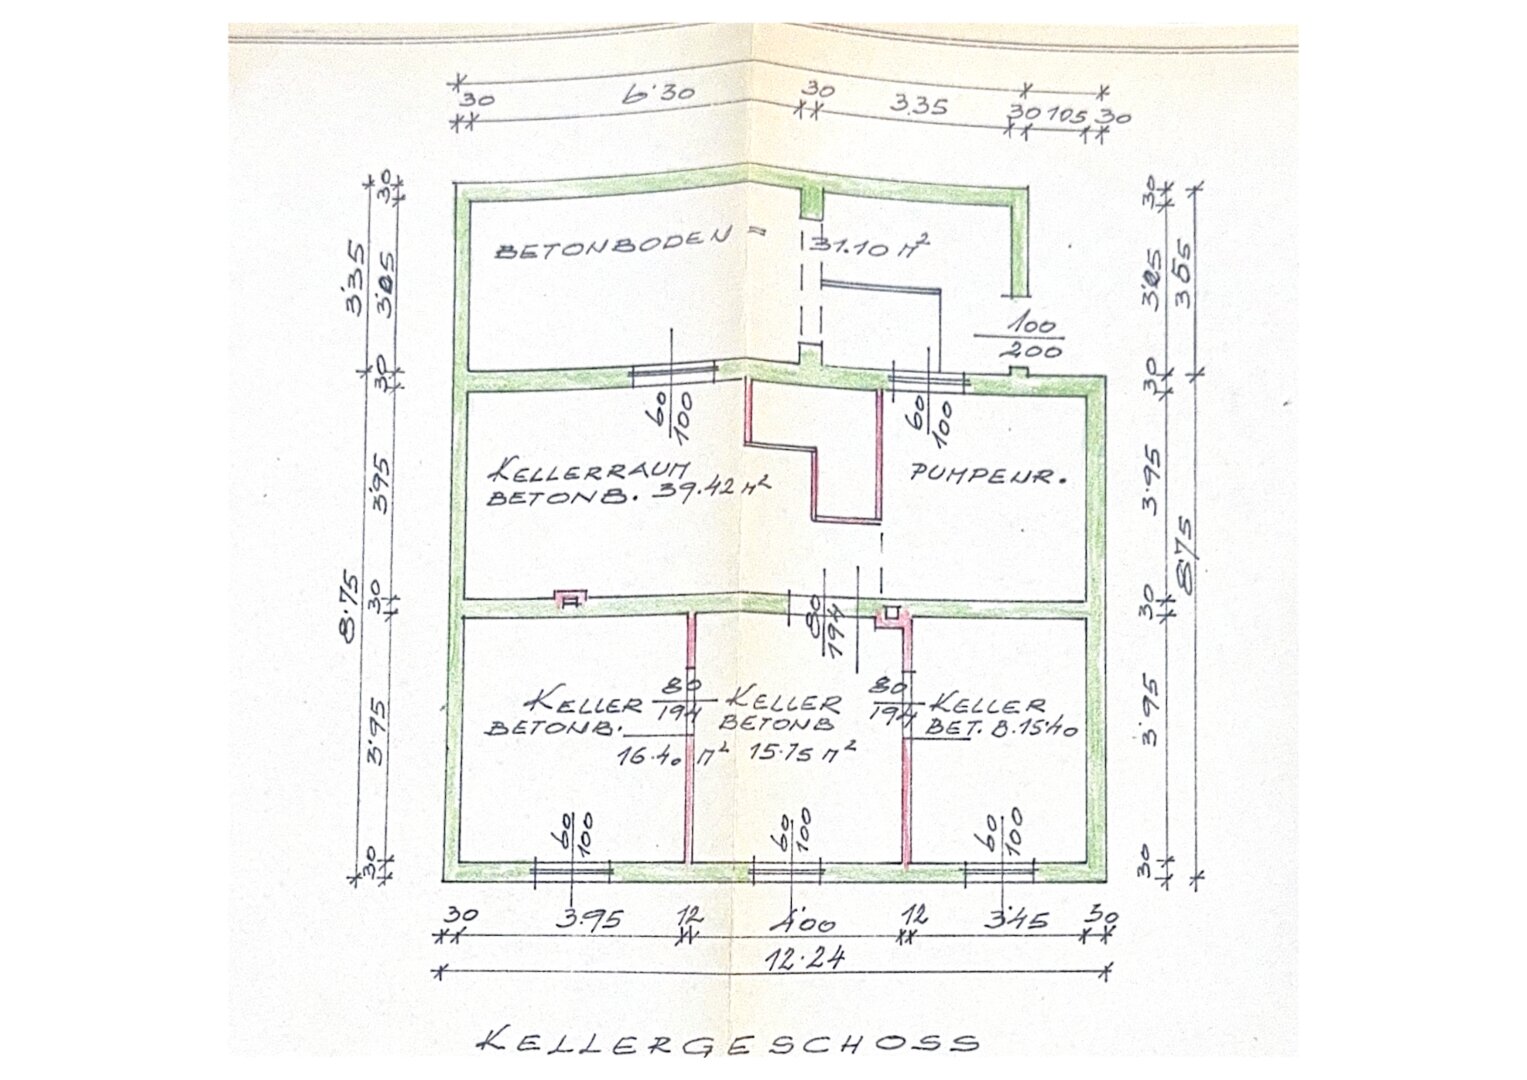 30 6.30 30 3.35 30 105 30
30
3.35
3.05
30
3.95
30
8.75
3.95
30
30
3.05
3.65
30
3.95
875
30
3.95
30
BETONBODEN = 31.10 m²
100
200
60
100
60
100
KELLERRAUM
BETONB. 39.42 m²
PUMPENR.
80
194
KELLER
BETONB.
16.40 m²
80
194
KELLER
BETONB
15.75 m²
80
194
KELLER
BET. B. 15.40
60
100
60
100
60
100
30 3.95 12 4.00 12 3.45 30
12.24
KELLERGESCHOSS